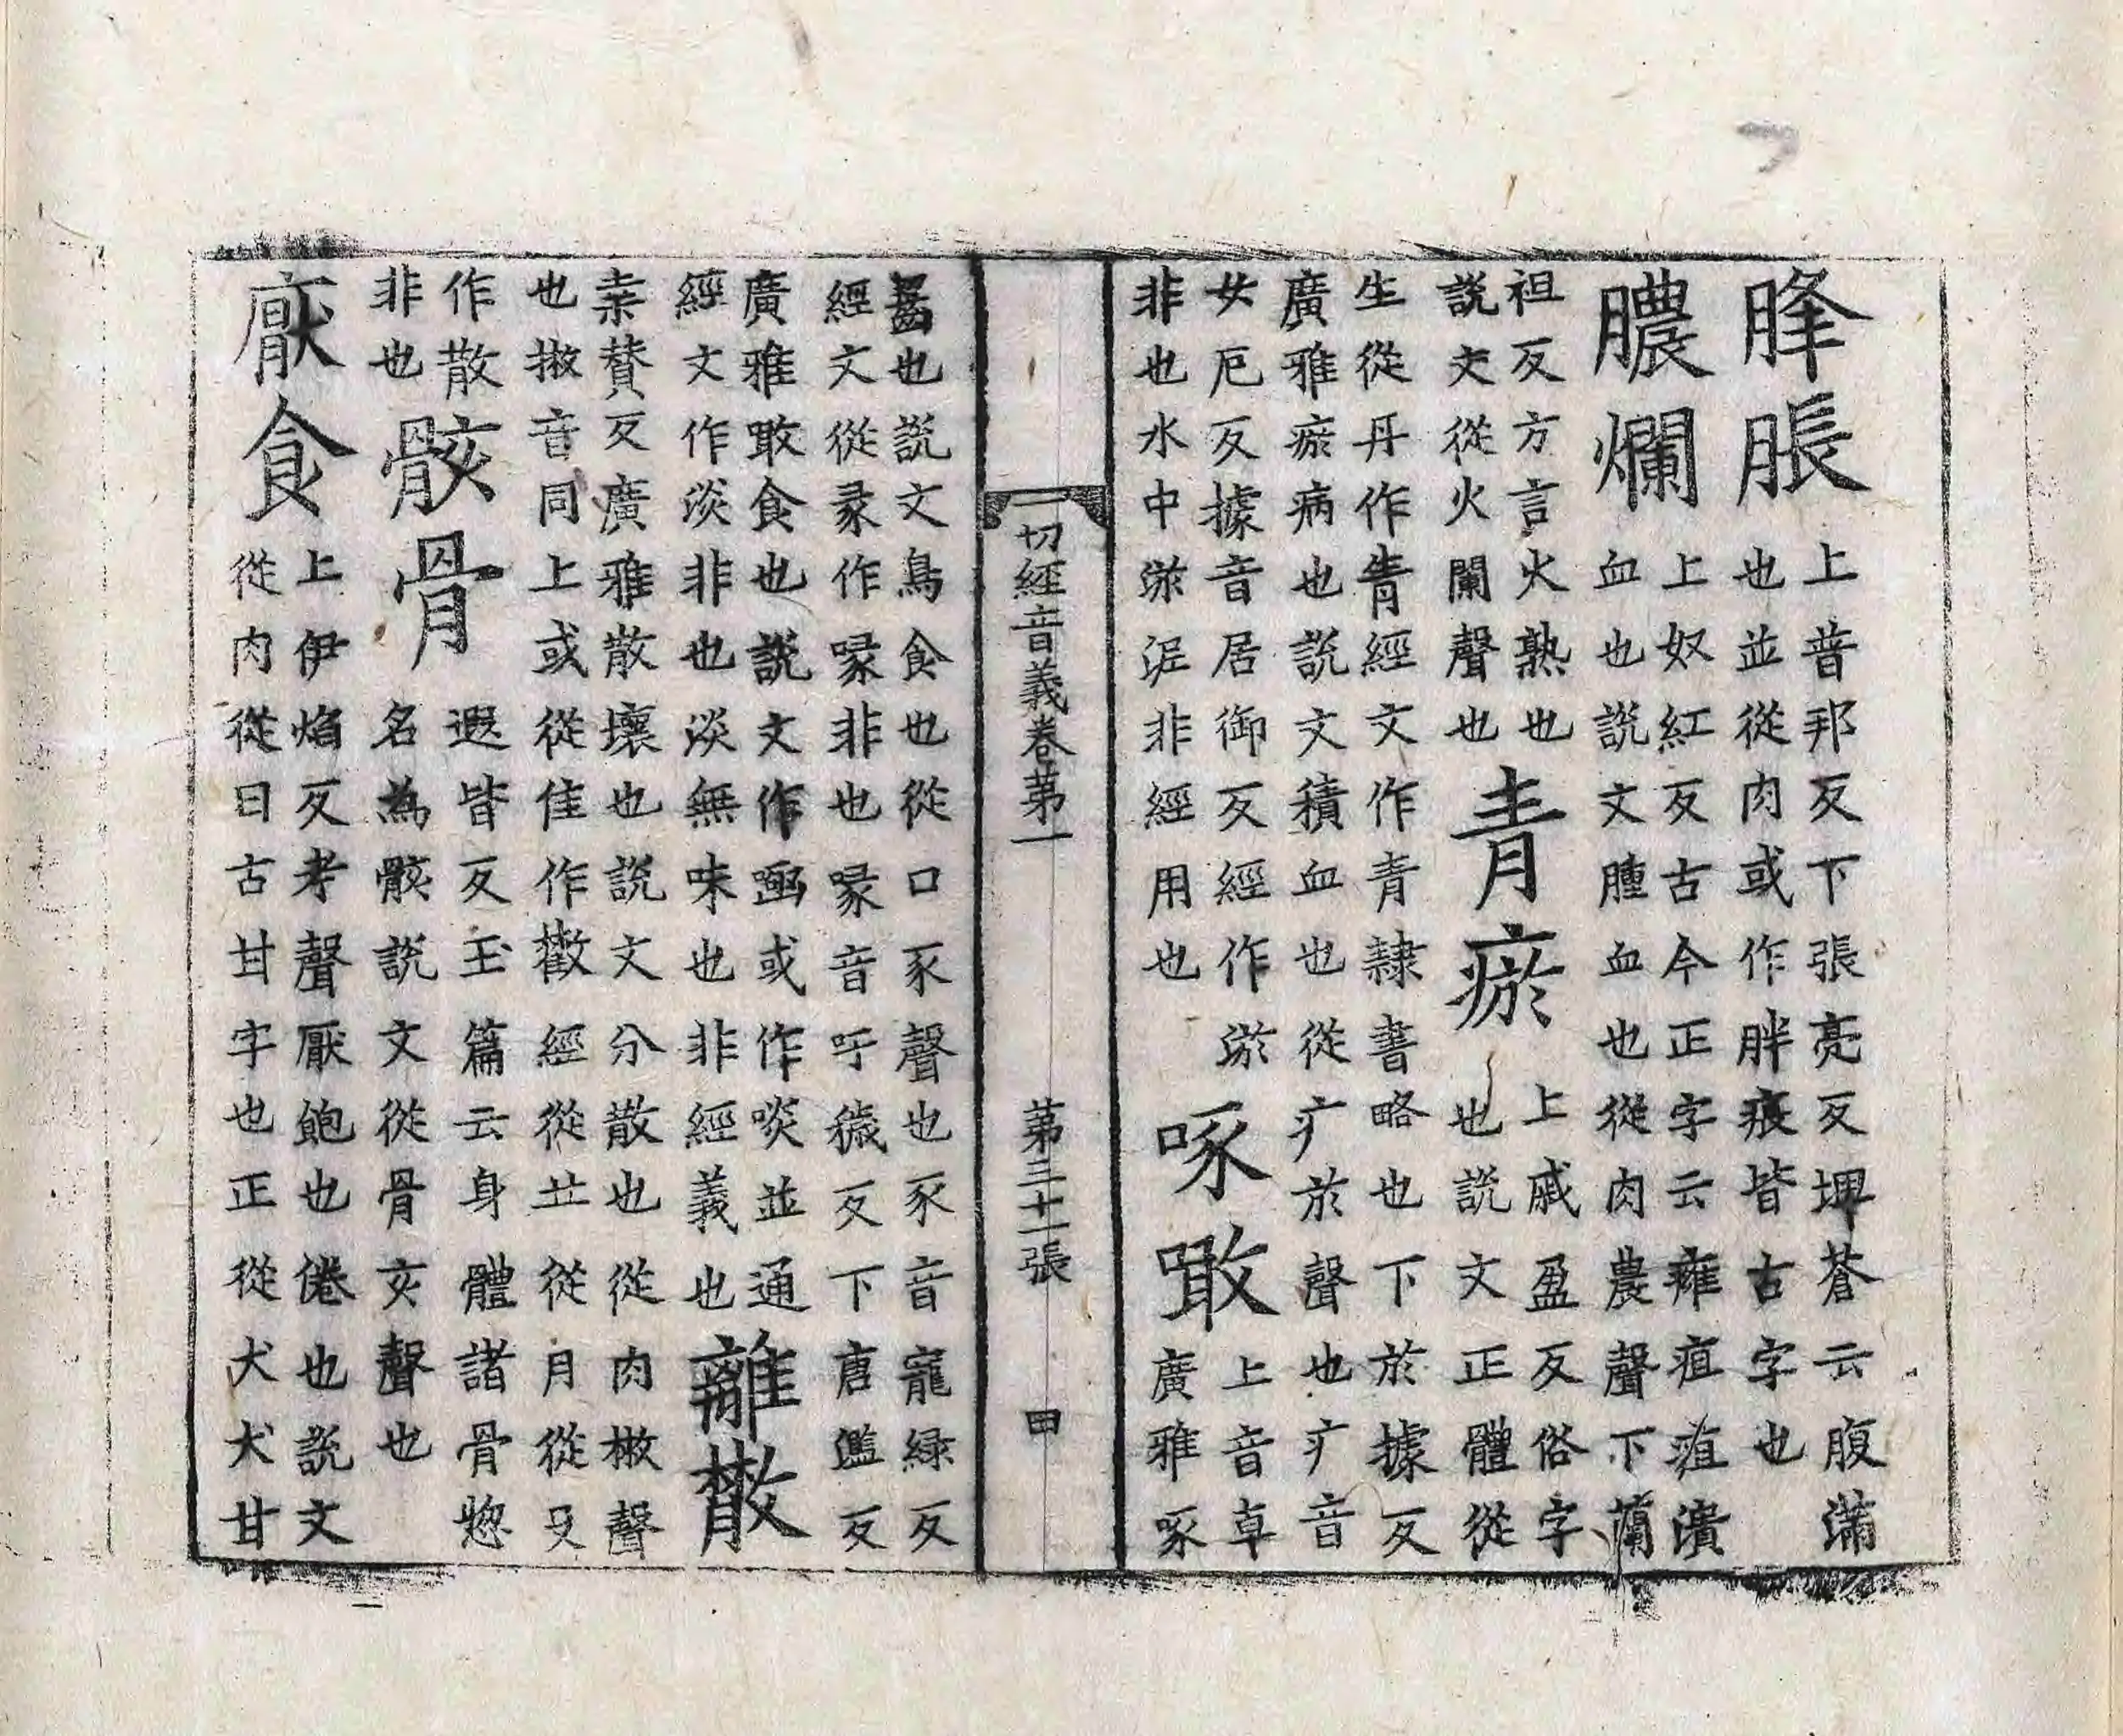 胮脹
上普邦反下張亮反埤蒼云腹滿
也並從肉或作胖痕皆古字也
膿爛
上奴紅反古今正字云癰疽疽潰
血也說文腫血也從肉農聲下蘭
袒反方言火熟也
說文從火闌聲也
青瘀
上戚盈反俗字
也說文正體從
生從丹作靑經文作青隷書略也下於據反
廣雅瘀病也說文積血也從疒於聲也疒音
女厄反據音居御反經作淤
非也水中淤泥非經用也
啄噉
上音卓
廣雅啄
一切經音義卷第一 第三十二張 田
齧也說文鳥食也從口豕聲也豕音寵緑反
經文從彖作喙非也喙音吁穢反下唐濫反
廣雅噉食也說文作㗖或作啖並通
經文作淡非也淡無味也非經義也
離散
桒賛反廣雅散壞也說文分散也從肉㪔聲
也㪔音同上或從隹作㪚經從𠀎從月從攵
作散
非也
骸骨
遐皆反玉篇云身體諸骨惣
名為骸說文從骨亥聲也
猒食
上伊焰反考聲厭飽也倦也說文
從肉從曰古甘字也正從犬犬甘